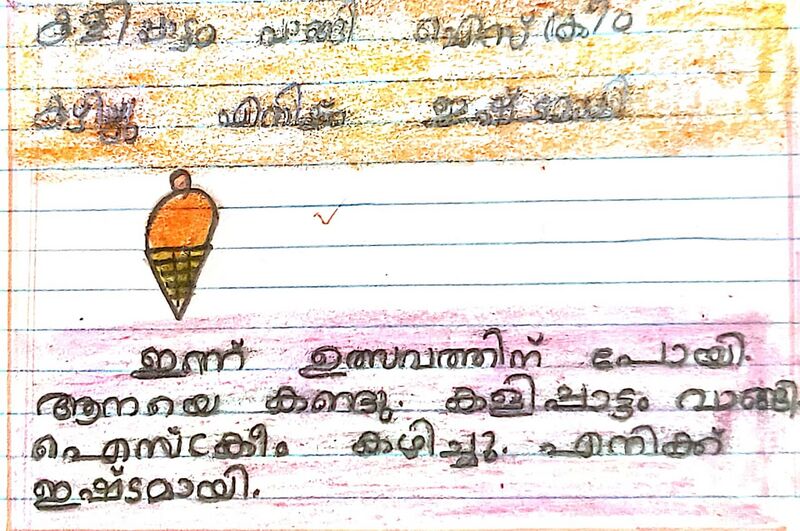 കളിപ്പാട്ടം വാങ്ങി ഐസ്ക്രീം
കഴിച്ചു എനിക്കും ഇഷ്ടമായി
ഇന്ന് ഉത്സവത്തിന് പോയി.
ആനയെ കണ്ടു. കളിപ്പാട്ടം വാങ്ങി
ഐസ്ക്രീം കഴിച്ചു. എനിക്ക്
ഇഷ്ടമായി.